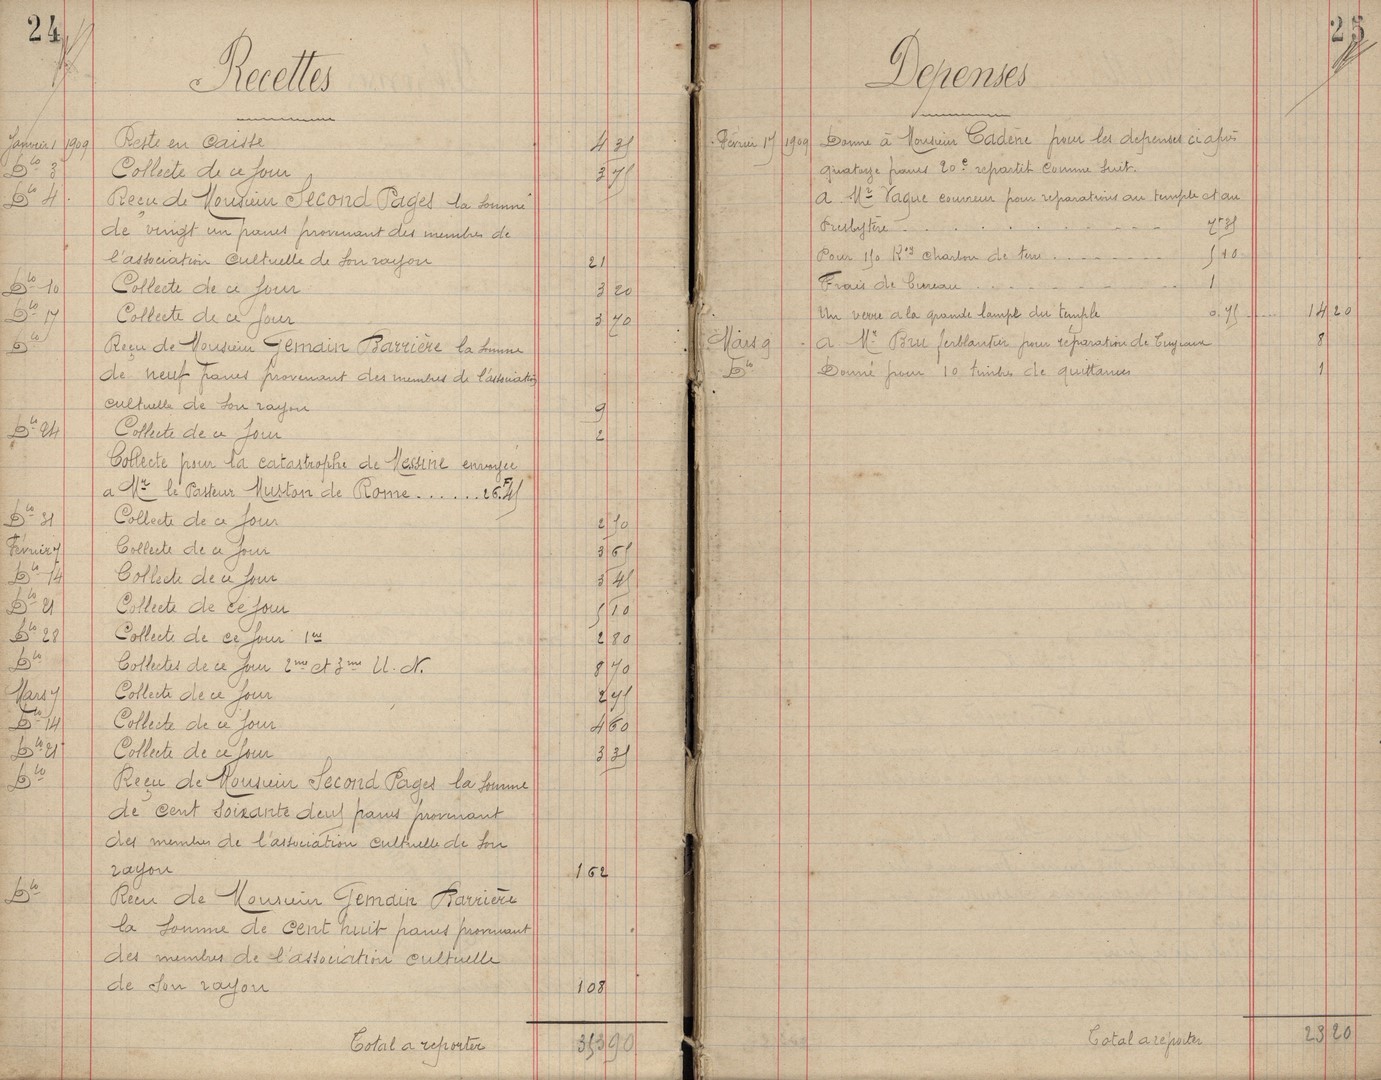 24
Recettes
Janvier 1 1909 Reste en caisse 4 35
Dto 3 Collecte de ce Jour 3 75
Dto 4 Reçu de Monsieur Second Pages la somme
de vingt un francs provenant des membres de
l'association cultuelle de son rayon 21
Dto 10 Collecte de ce Jour 3 20
Dto 17 Collecte de ce Jour 3 70
Dto Reçu de Monsieur Gemain Barrière la somme
de neuf francs provenant des membres de l'association
cultuelle de son rayon 9
Dto 24 Collecte de ce Jour 2
Collecte pour la catastrophe de Messine envoyée
a Mr le Pasteur Muston de Rome ...... 26.F45
Dto 31 Collecte de ce Jour 2 50
Février 7 Collecte de ce Jour 3 65
Dto 14 Collecte de ce Jour 3 45
Dto 21 Collecte de ce Jour 5 10
Dto 28 Collecte de ce Jour 1re 2 80
Dto Collectes de ce Jour 2me et 3me U. N. 8 70
Mars 7 Collecte de ce Jour 2 75
Dto 14 Collecte de ce Jour 4 60
Dto 21 Collecte de ce Jour 3 35
Dto Reçu de Monsieur Second Pages la somme
de cent soixante deux francs provenant
des membres de l'association cultuelle de son
rayon 162
Dto Reçu de Monsieur Gemain Barrière
la somme de cent huit francs provenant
des membres de l'association cultuelle
de son rayon 108
Total a reporter 353 90
25
Depenses
Février 17 1909 Donné à Monsieur Cadène pour les depenses ci après
quatorze francs 20c repartit comme suit.
a Mr Vague couvreur pour reparations au temple et au
Presbytère 7f 35
Pour 150 Kos charbon de terre 5 10
Frais de bureau 1
Un verre a la grande lampe du temple 0.75 14 20
Mars 9 a Mr Bru ferblantier pour réparation de tuyeaux 8
Dto Donné pour 10 timbres de quittances 1
Total a reporter 23 20